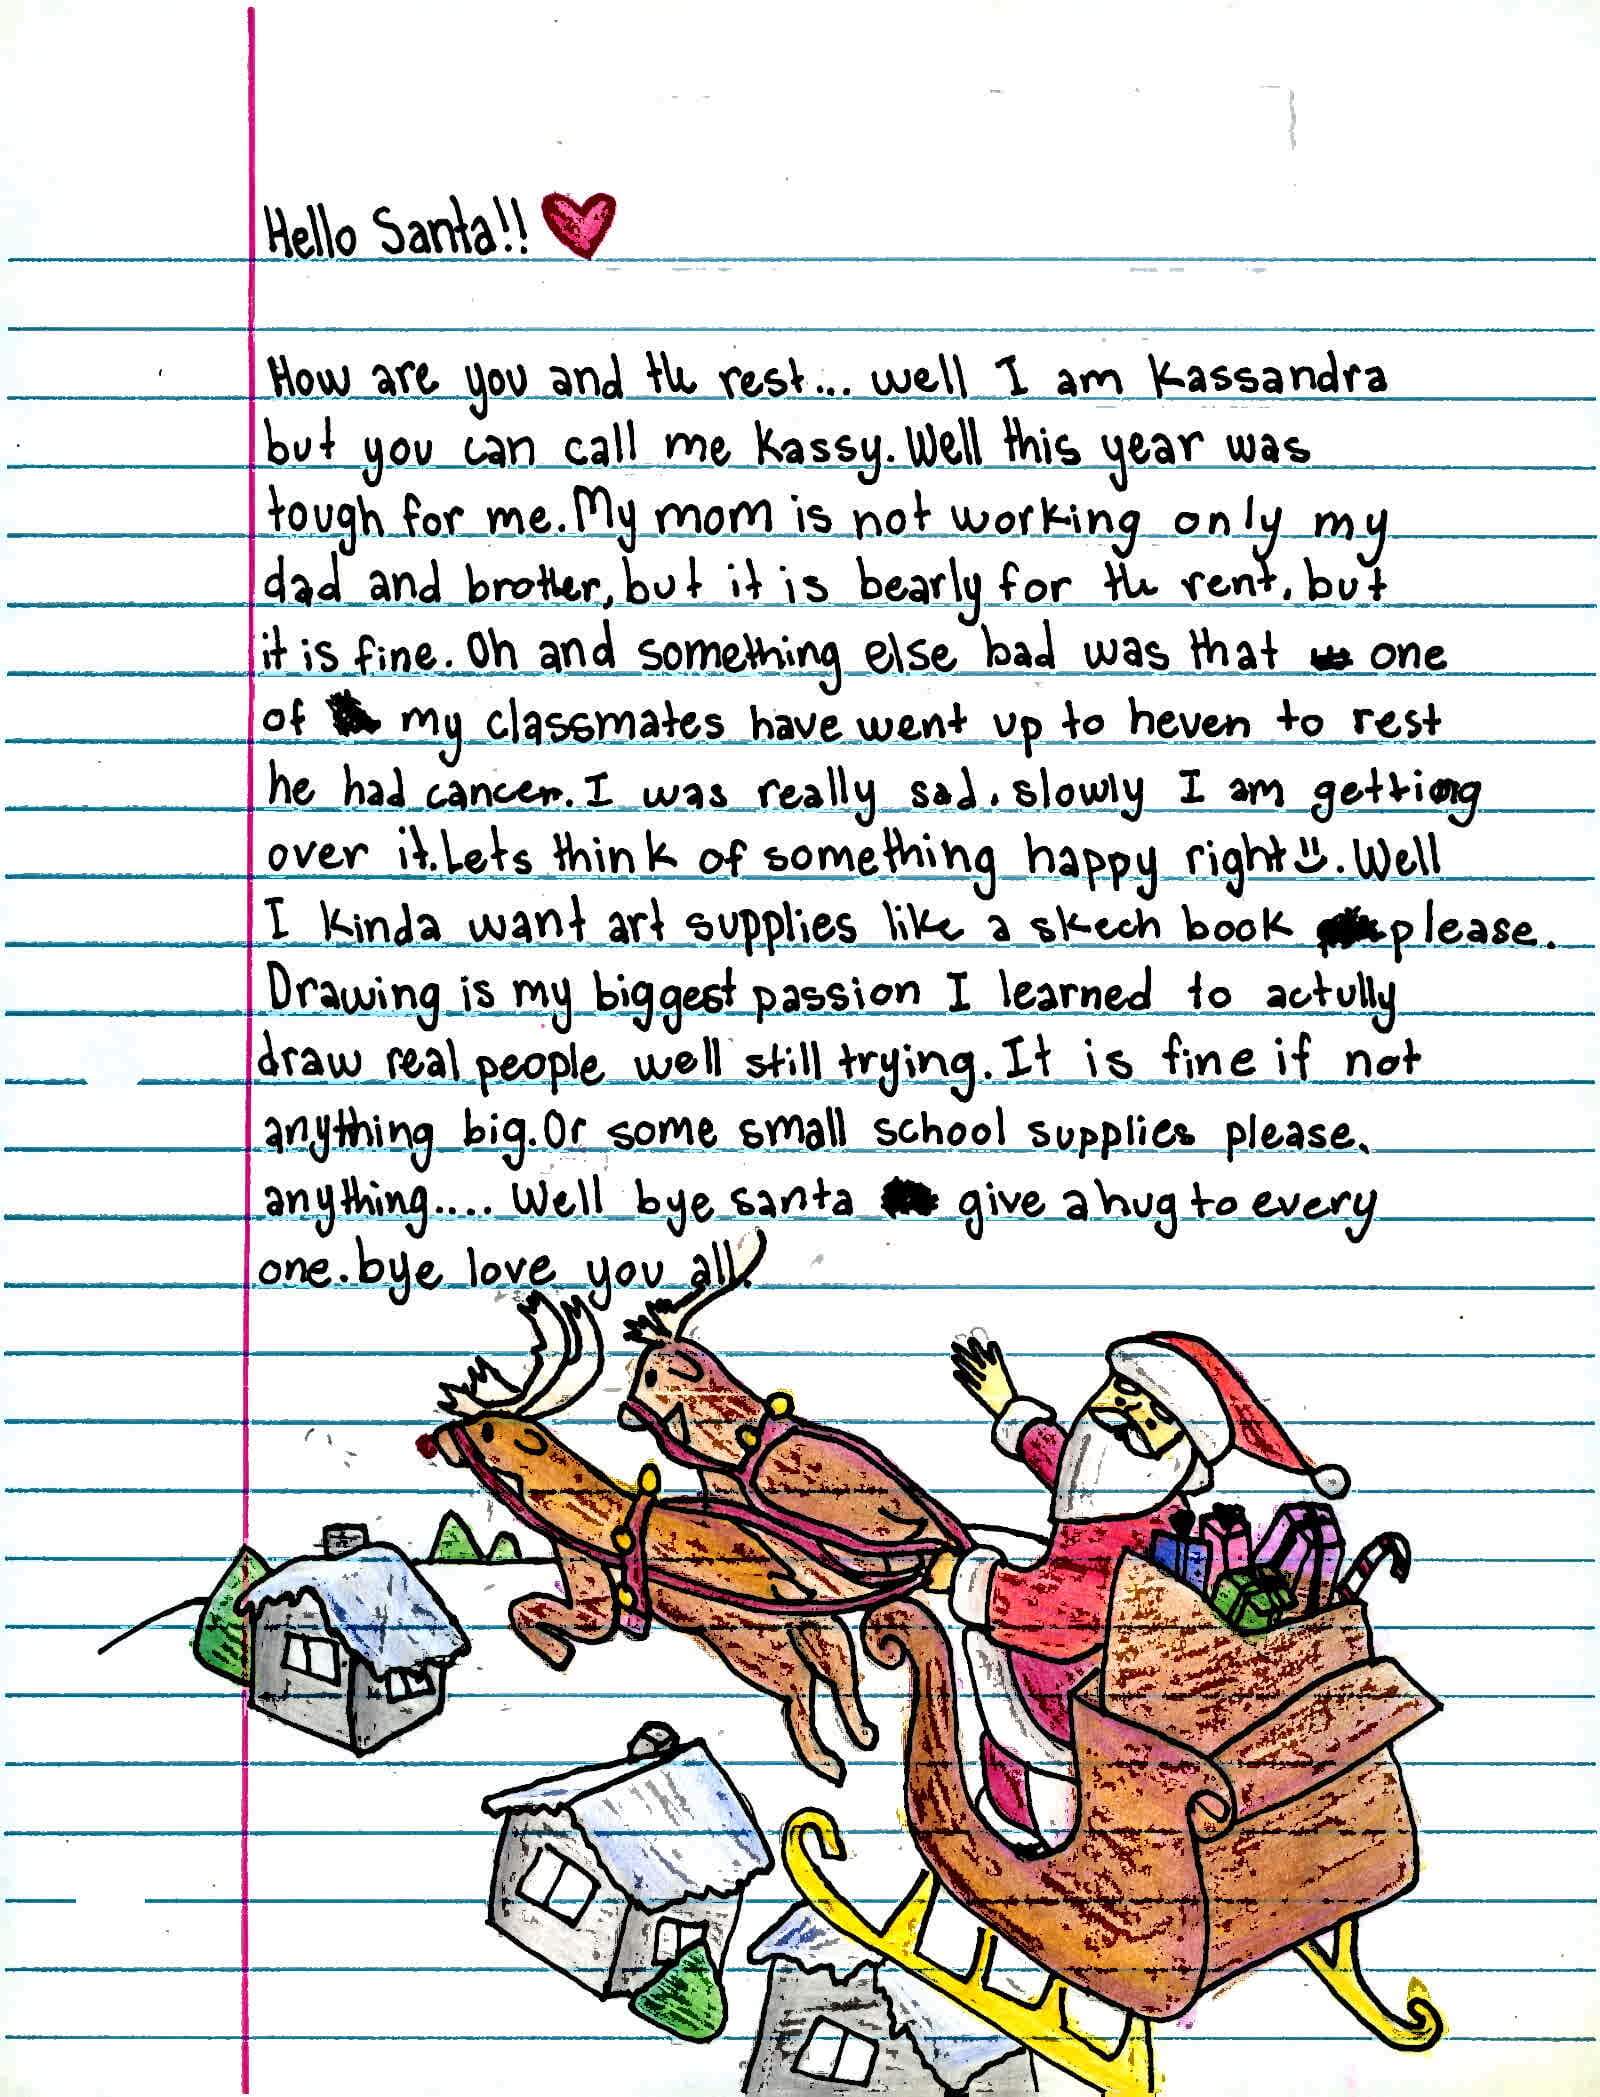 Hello Santa!!
How are you and the rest... well I am Kassandra
but you can call me Kassy. Well this year was
tough for me. My mom is not working only my
dad and brother, but it is bearly for the rent. but
it is fine. Oh and something else bad was that one
of my classmates have went up to heven to rest
he had cancer. I was really sad. slowly I am getting
over it. Lets think of something happy right. Well
I kinda want art supplies like a skech book please.
Drawing is my biggest passion I learned to actully
draw real people well still trying. It is fine if not
anything big. Or some small school supplies please.
anything.... Well bye santa give a hug to every
one. bye love you all.